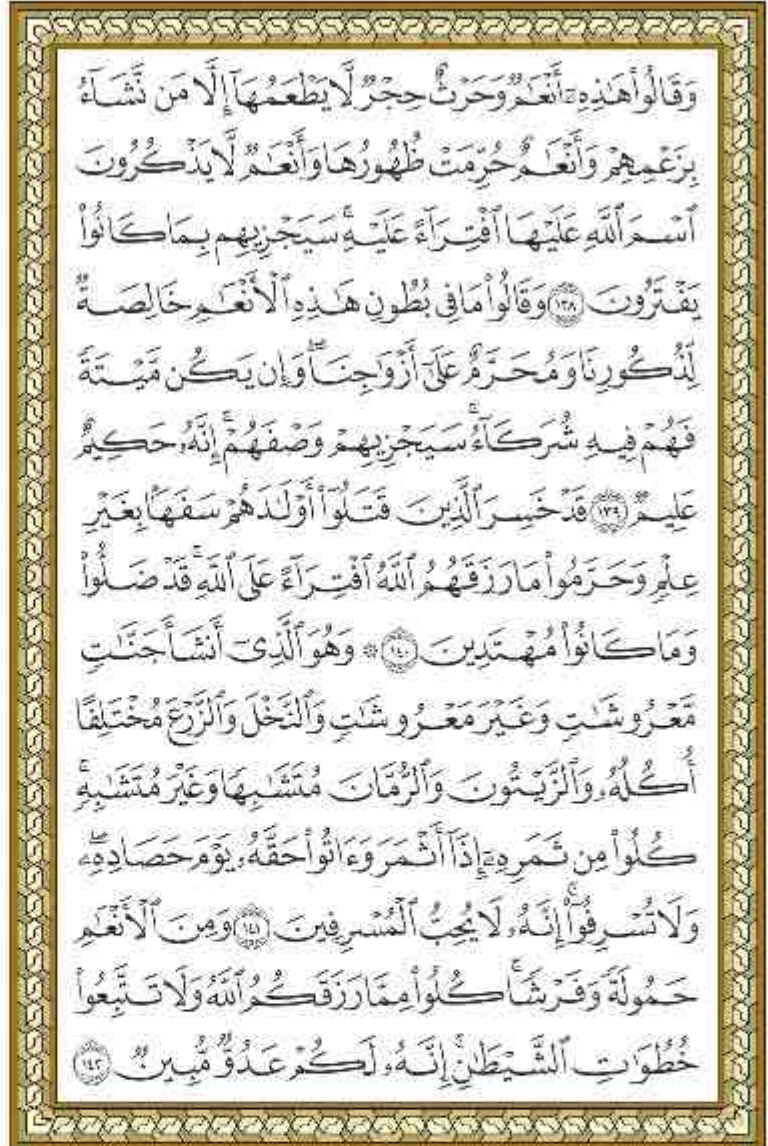 وَقَالُوا۟ هَٰذِهِۦٓ أَنْعَٰمٌ وَحَرْثٌ حِجْرٌ لَّا يَطْعَمُهَآ إِلَّا مَن نَّشَآءُ
بِزَعْمِهِمْ وَأَنْعَٰمٌ حُرِّمَتْ ظُهُورُهَا وَأَنْعَٰمٌ لَّا يَذْكُرُونَ
ٱسْمَ ٱللَّهِ عَلَيْهَا ٱفْتِرَآءً عَلَيْهِ ۚ سَيَجْزِيهِم بِمَا كَانُوا۟
يَفْتَرُونَ ١٣٨ وَقَالُوا۟ مَا فِى بُطُونِ هَٰذِهِ ٱلْأَنْعَٰمِ خَالِصَةٌ
لِّذُكُورِنَا وَمُحَرَّمٌ عَلَىٰٓ أَزْوَٰجِنَا ۖ وَإِن يَكُن مَّيْتَةً
فَهُمْ فِيهِ شُرَكَآءُ ۚ سَيَجْزِيهِمْ وَصْفَهُمْ ۚ إِنَّهُۥ حَكِيمٌ
عَلِيمٌ ١٣٩ قَدْ خَسِرَ ٱلَّذِينَ قَتَلُوٓا۟ أَوْلَٰدَهُمْ سَفَهًۢا بِغَيْرِ
عِلْمٍ وَحَرَّمُوا۟ مَا رَزَقَهُمُ ٱللَّهُ ٱفْتِرَآءً عَلَى ٱللَّهِ ۚ قَدْ ضَلُّوا۟
وَمَا كَانُوا۟ مُهْتَدِينَ ١٤٠ ۞ وَهُوَ ٱلَّذِىٓ أَنشَأَ جَنَّٰتٍ
مَّعْرُوشَٰتٍ وَغَيْرَ مَعْرُوشَٰتٍ وَٱلنَّخْلَ وَٱلزَّرْعَ مُخْتَلِفًا
أُكُلُهُۥ وَٱلزَّيْتُونَ وَٱلرُّمَّانَ مُتَشَٰبِهًا وَغَيْرَ مُتَشَٰبِهٍ ۚ
كُلُوا۟ مِن ثَمَرِهِۦٓ إِذَآ أَثْمَرَ وَءَاتُوا۟ حَقَّهُۥ يَوْمَ حَصَادِهِۦ ۖ
وَلَا تُسْرِفُوٓا۟ ۚ إِنَّهُۥ لَا يُحِبُّ ٱلْمُسْرِفِينَ ١٤١ وَمِنَ ٱلْأَنْعَٰمِ
حَمُولَةً وَفَرْشًا ۚ كُلُوا۟ مِمَّا رَزَقَكُمُ ٱللَّهُ وَلَا تَتَّبِعُوا۟
خُطُوَٰتِ ٱلشَّيْطَٰنِ ۚ إِنَّهُۥ لَكُمْ عَدُوٌّ مُّبِينٌ ١٤٢